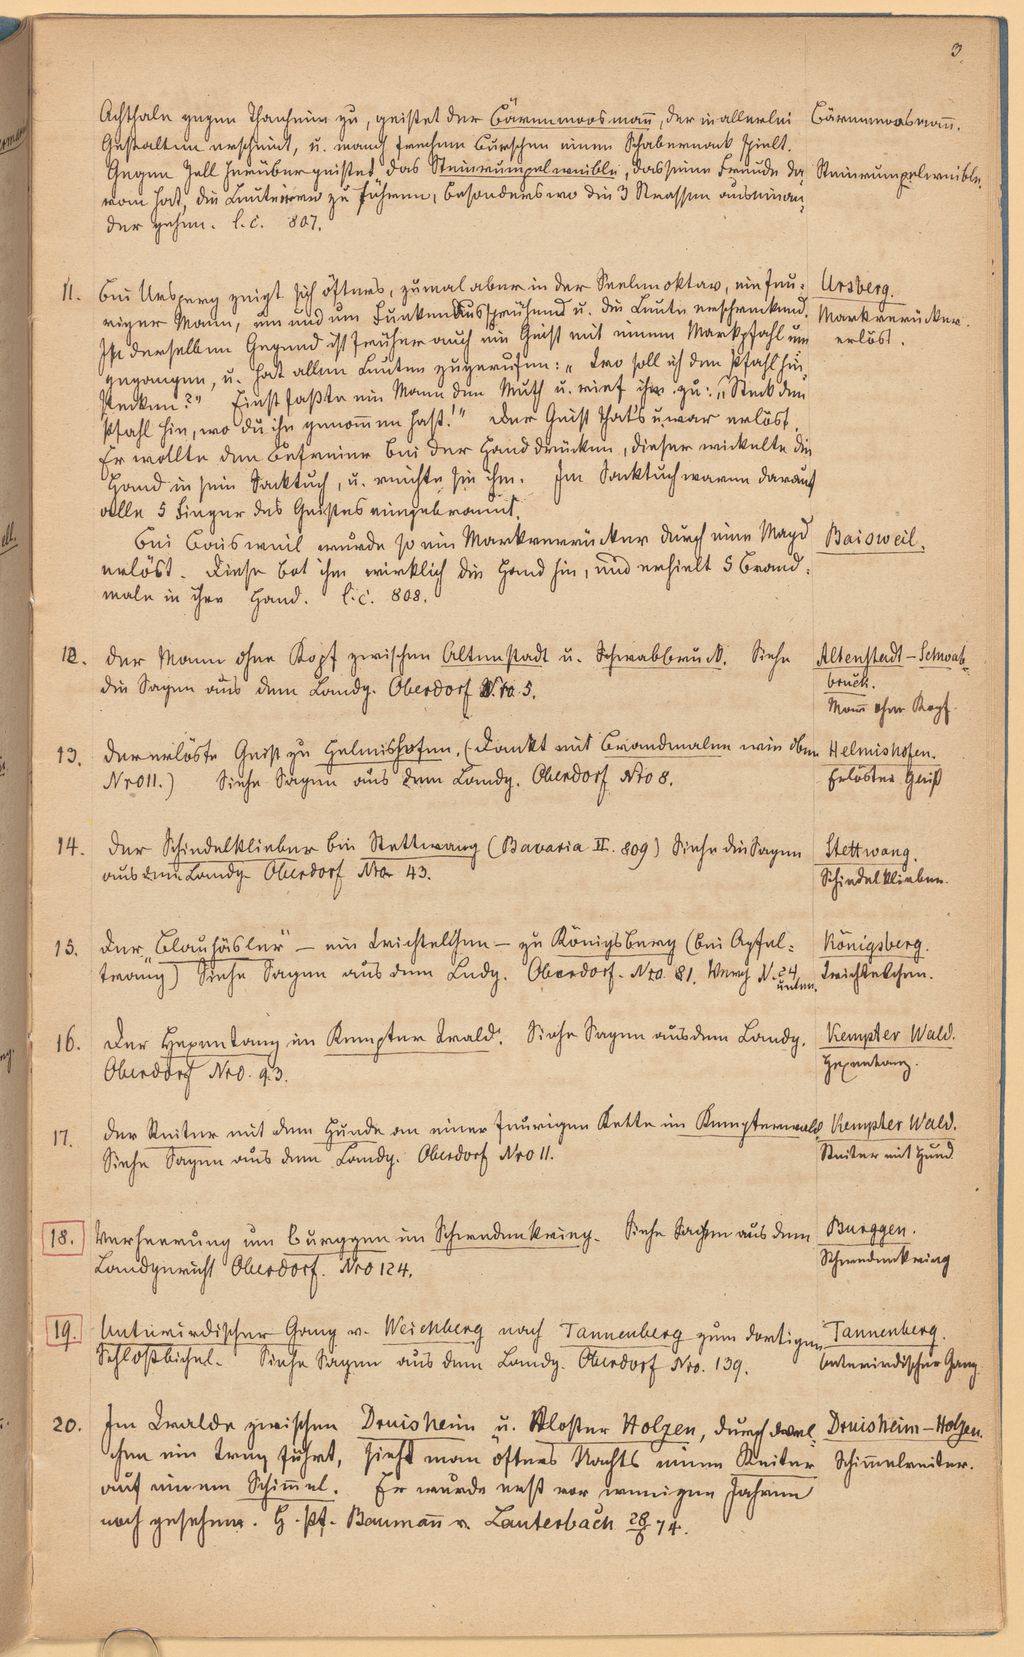 3.
Achthale gegen Thanheim zu, geistet der Bärenmoosmañ, der in allerlei
Gestalten erscheint, u. manch frechem Burschen einen Schabernack spielt.
Gegen Zell herüber geistet das Steinrumpelweible, das seine Freude da,
von hat, die Leute irre zu führen, besonders wo die 3 Strassen auseinan,
der gehen. l. c. 807.
Bärenmoosmañ.
Steinrumpelweible.
11. Bei Ursperg zeigt sich öfters, zumal aber in der Seelenoktav, ein feu-
riger Mann, um und um Funken aussprühend u. die Leute erschreckend.
In derselben Gegend ist früher auch ein Geist mit einem Markpfahl um
gegangen, u. hat allen Leuten zugerufen: „Wo soll ich den Pfahl hin
stecken?" Einst faßte ein Mann den Muth u. rief ihm zu: „Steck den
Pfahl hin, wo du ihn genom̄en hast!" Der Geist that's u. war erlöst.
Er wollte dem Befreier bei der Hand drücken, dieser wickelte die
Hand in sein Sacktuch, u. reichte sie ihm. Im Sacktuch waren darauf
alle 5 Finger des Geistes eingebrannt.
Ursberg.
Markverücker
erlöst.
Bei Baisweil wurde so ein Markverrücker durch eine Magd
erlöst. Diese bot ihm wirklich die Hand hin, und erhielt 5 Brand-
male in ihre Hand. l. c. 808.
Baisweil.
12. Der Mann ohne Kopf zwischen Altenstadt u. Schwabbruck. Siehe
die Sagen aus dem Landg. Oberdorf Nro 5.
Altenstadt - Schwab-
bruck.
Mañ ohne Kopf.
13. Der erlöste Geist zu Helmishofen. (Dankt mit Brandmalen wie oben
Nro 11.) Siehe Sagen aus dem Landg. Oberdorf Nro 8.
Helmishofen.
Erlöster Geist
14. Der Schindelklieber bei Stettwang (Bavaria II. 809) Siehe die Sagen
aus dem Landg. Oberdorf Nro 43.
Stettwang.
Schindelklieber.
15. Der „Blauhäsler" - ein Wichtelchen - zu Königsberg (bei Apfel-
trang) Siehe Sagen aus dem Ludg. Oberdorf. Nro. 81. N. 24
unten.
Königsberg.
Wichtelchen.
16. Der Hexentanz im Kempter Wald. Siehe Sagen aus dem Landg.
Oberdorf Nro. 93.
Kempter Wald.
Hexentanz.
17. Der Reiter mit dem Hunde an einer feurigen Kette im Kempterwald
Siehe Sagen aus dem Landg. Oberdorf Nro 11.
Kempter Wald.
Reiter mit Hund
18. Verheerung um Burggen im Schwedenkrieg. Siehe Sagen aus dem
Landgericht Oberdorf. Nro 124.
Burggen.
Schwedenkrieg
19. Unterirdischer Gang v. Weichberg nach Tannenberg zum dortigen
Schloßbichel. Siehe Sagen aus dem Landg. Oberdorf Nro. 139.
Tannenberg.
Unterirdischer Gang.
20. Im Walde zwischen Druisheim u. Kloster Holzen, durch wel-
chen ein Weg führt, sieht man öfters Nachts einen Reiter
auf einem Schim̄el. Er wurde erst vor wenigen Jahren
noch gesehen. H. Pf. Baumañ v. Lauterbach 28/8 74.
Druisheim - Holzen.
Schim̄elreiter.